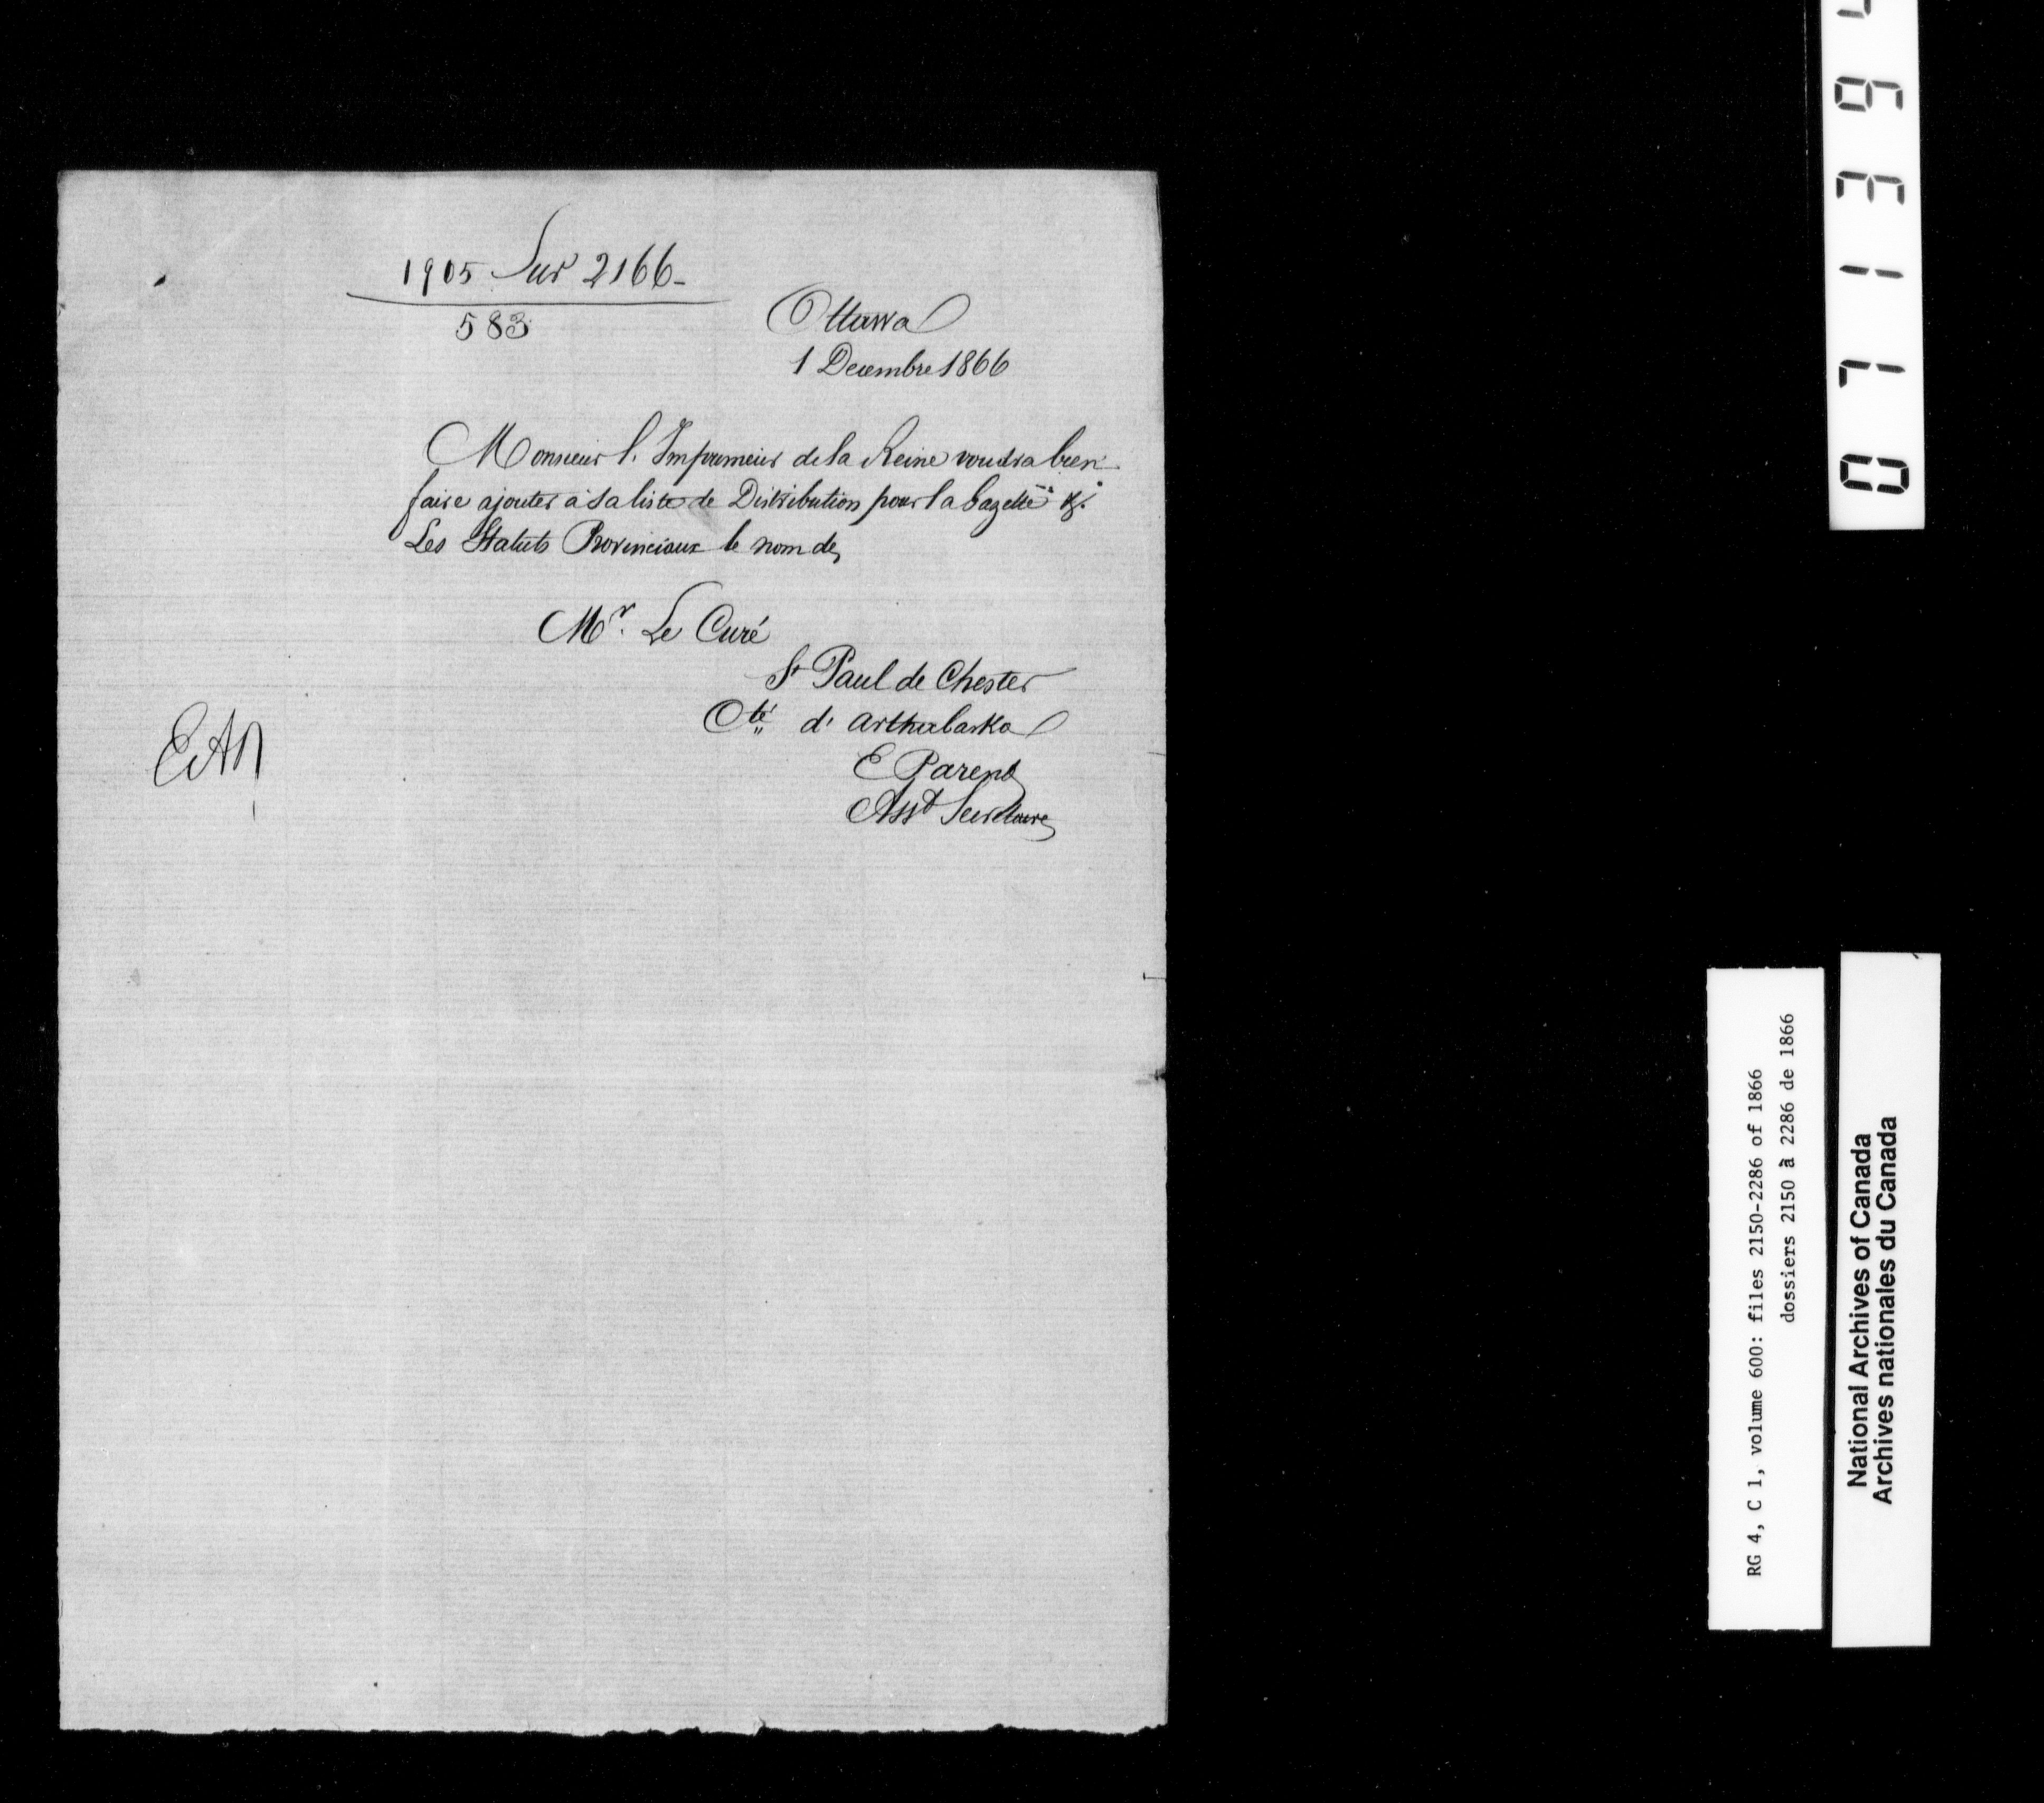 1905 Sur 2166-
583
Ottawa
1 Decembre 1866
Monsieur l'Imprimeur de la Reine voudra bien
faire ajouter à sa liste de Distribution pour la Gazette &
Les Statuts Provinciaux le nom de,
Mr. Le Curé
St Paul de Chester
Cté d'arthabaska
E Parent
Asst Secretaire
071394
RG 4, C 1, volume 600: files 2150-2286 of 1866
dossiers 2150 à 2286 de 1866
National Archives of Canada
Archives nationales du Canada